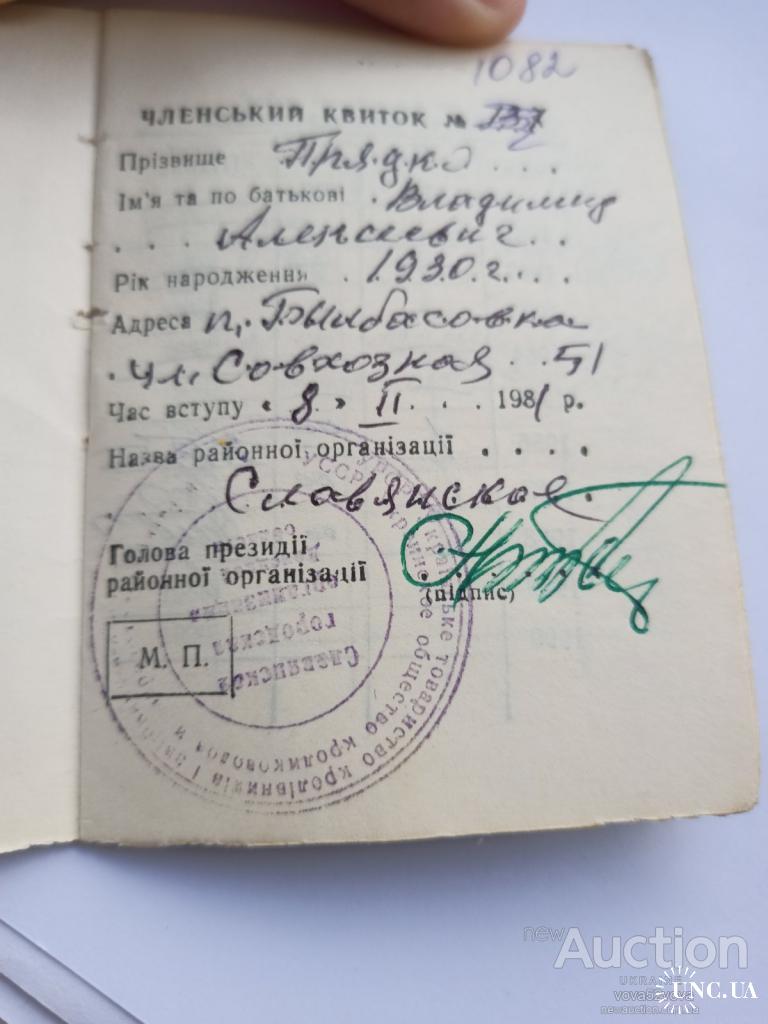 1082
ЧЛЕНСЬКИЙ КВИТОК №
Прізвище Прядко . . .
Ім'я та по батькові . Владимир
. . . Алексеевич . .
Рік народження . 1930 г. . . .
Адреса п. Былбасовка
. ул. Совхозная . . 51
Час вступу « 8 » II . . . 1981 р.
Назва районної організації . . . .
. Славянская .
Голова президії
районної організації
(підпис)
М. П.
Українське товариство кролівників і
УССР Украинское общество кролиководов и
Славянская
городская
организация
new Auction
UKRAINE
vova52vova
newauction.com.ua
UNC.UA